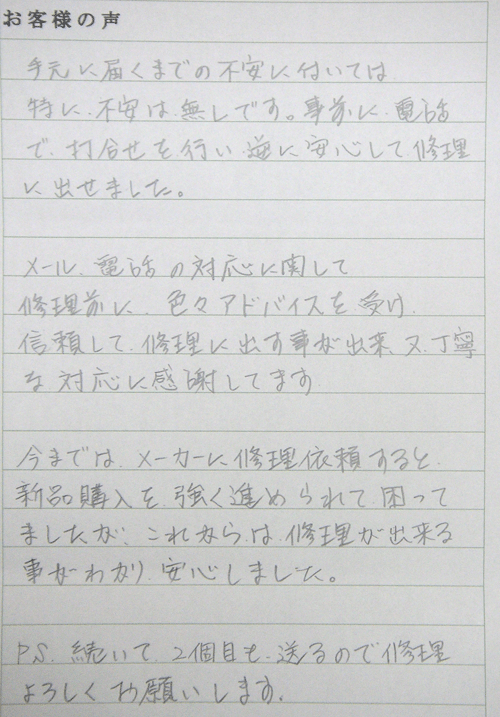 お客様の声
手元に届くまでの不安に付いては
特に、不安は、無しです。事前に、電話
で、打合せを行い逆に安心して、修理
に出せました。
メール、電話の対応に関して
修理前に、色々アドバイスを受け、
信頼して、修理に出す事が出来、又、丁寧
な対応に感謝してます
今までは、メーカーに修理依頼すると、
新品購入を、強く進められて、困って
ましたが、これからは、修理が出来る
事がわかり、安心しました。
P.S. 続いて、2個目も、送るので修理
よろしくお願いします。